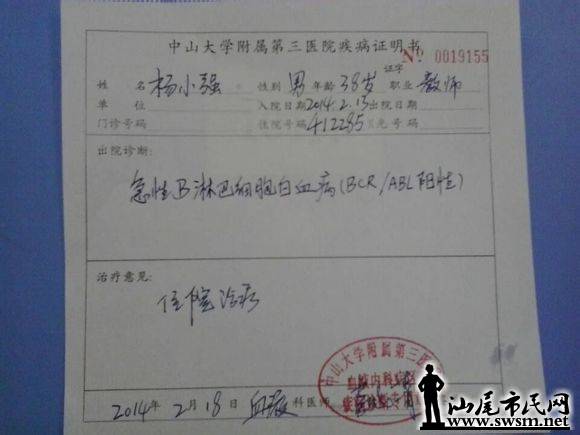 中山大学附属第三医院疾病证明书
证字
№ 0019155
姓 名 杨小强 性别 男 年龄 38岁 职业 教师
单 位 入院日期 2014.2.13 出院日期
门诊号码 住院号码 412285 X光号码
出院诊断:
急性B淋巴细胞白血病(BCR/ABL阳性)
治疗意见:
住院治疗
中山大学附属第三医
血液内科
2014年 2月18日 血液 科医师
汕尾市民网
www.swsm.net